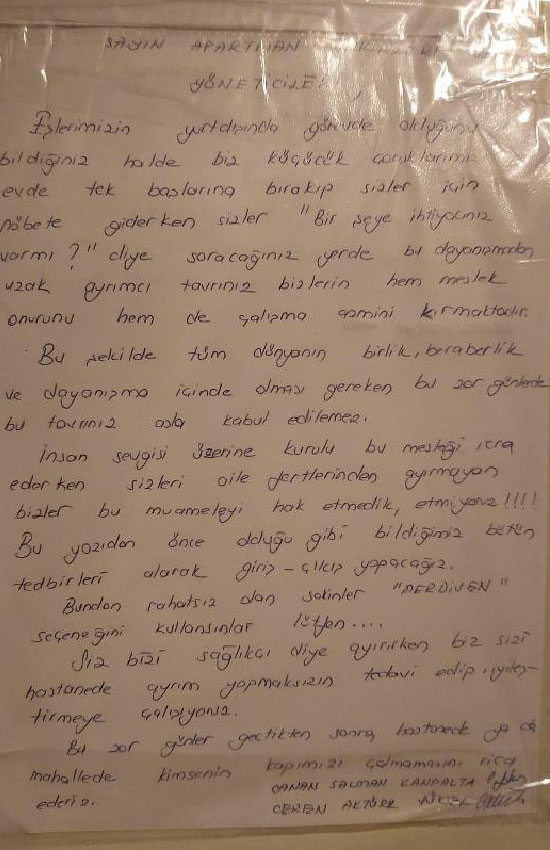 SAYIN APARTMAN
YÖNETİCİLERİ,
Eşlerimizin yurtdışında görevde olduğunu
bildiğiniz halde biz küçücük çocuklarımızı
evde tek başlarına bırakıp sizler için
nöbete giderken sizler "Bir şeye ihtiyacınız
varmı?" diye soracağınız yerde bu dayanışmadan
uzak ayrımcı tavrınız bizlerin hem meslek
onurunu hem de çalışma azmini kırmaktadır.
Bu şekilde tüm dünyanın birlik, beraberlik
ve dayanışma içinde olması gereken bu zor günlerde
bu tavrınız asla kabul edilemez.
İnsan sevgisi üzerine kurulu bu mesleği icra
ederken sizleri aile fertlerinden ayırmayan
bizler bu muameleyi hak etmedik, etmiyoruz!!!!
Bu yazıdan önce olduğu gibi bildiğimiz bütün
tedbirleri alarak giriş-çıkış yapacağız.
Bundan rahatsız olan sakinler "MERDİVEN"
seçeneğini kullansınlar lütfen....
Siz bizi sağlıkçı diye ayırırken biz sizi
hastanede ayrım yapmaksızın tedavi edip iyileş-
tirmeye çalışıyoruz.
Bu zor günler geçtikten sonra hastanede ya da
mahallede kimsenin kapımızı çalmamasını rica
ederiz.
CANAN SALMAN KANDALTA
CEREN AKTÜRK